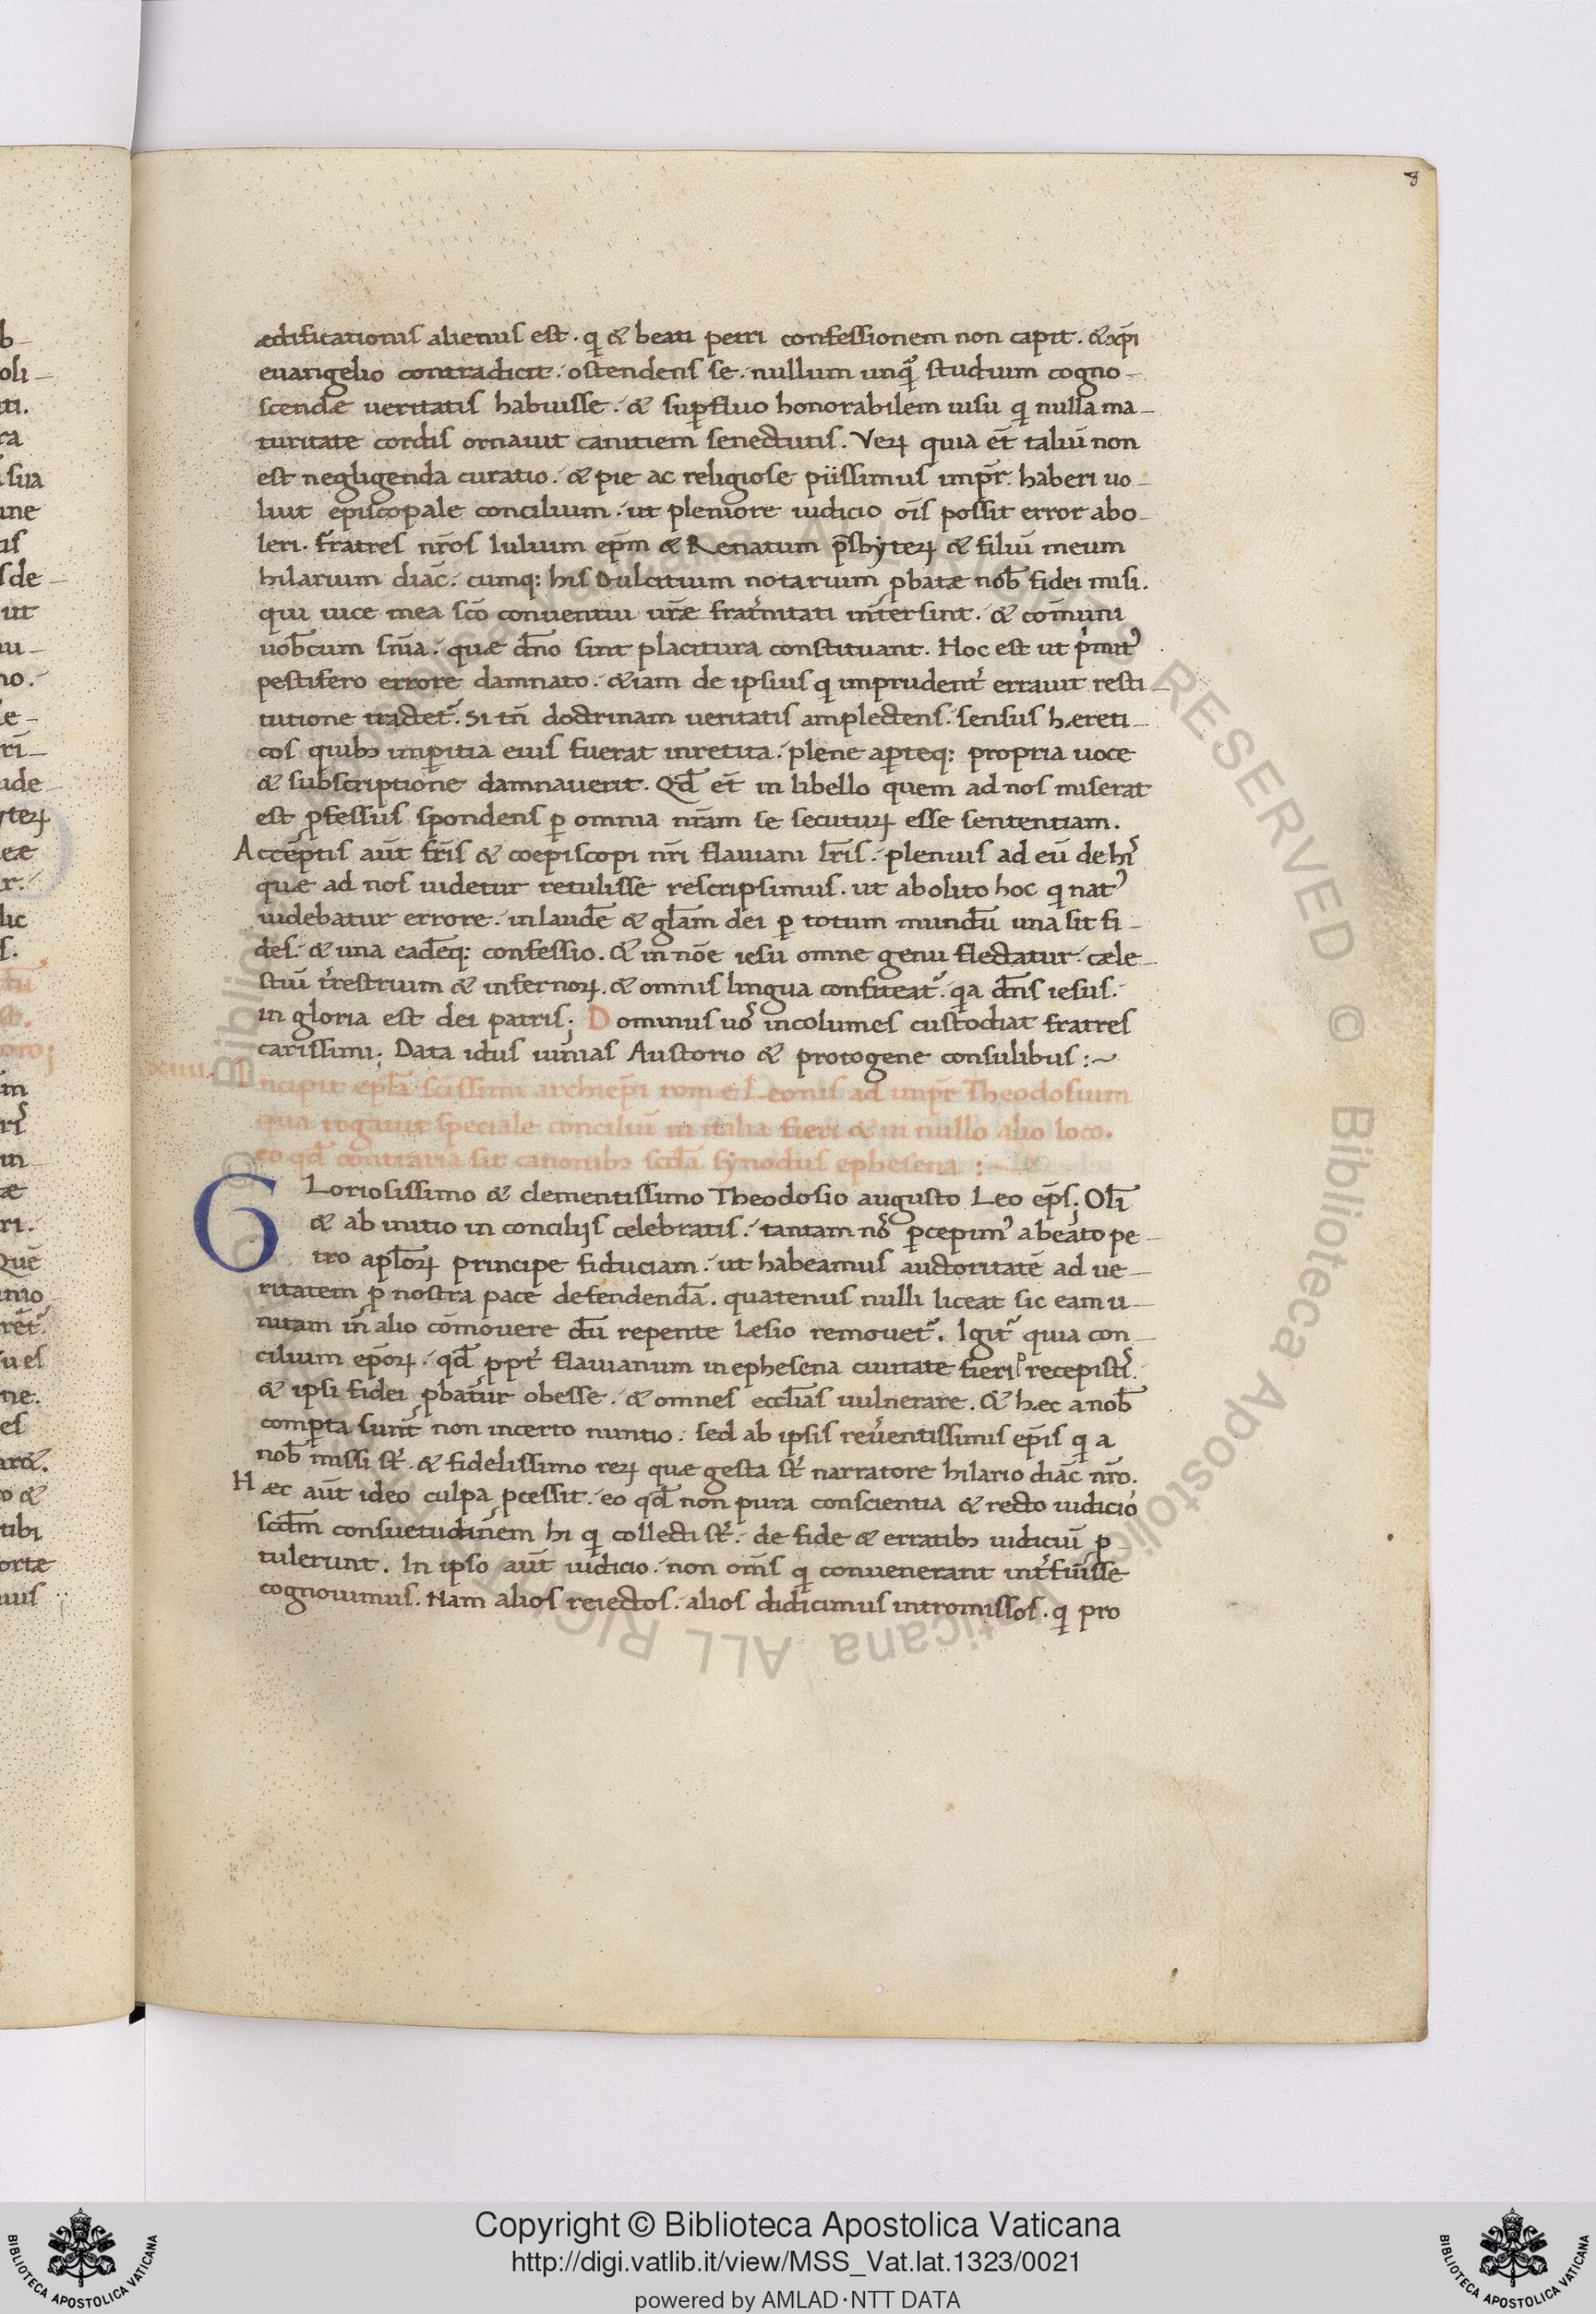 8
ædificationis alienus est. q̣ & beati petri confessionem non capit. & xp̄i
euangelio contradicit. ostendens se. nullum unq̃ studium cogno-
scendæ ueritatis habuisse. & suꝑfluo honorabilem uisu q̣ nulla ma-
turitate cordis ornauit canitiem senectutis. Verꝝ quia et̄ taliū non
est negligenda curatio. & pie ac religiose piissimus imp̄r. haberi uo-
luit episcopale concilium. ut pleniore iudicio oīs possit error abo-
leri. fratres nr̄os Iulium ep̄m & Renatum p̄sbyterꝝ & filiū meum
hilarium diac̄. cumq: his Dulcitium notarium ꝓbatæ nob̄ fidei misi.
qui uice mea sc̄o conuentui ur̄æ frat̄nitati int̄ersint. & com̄uni
uob̄cum sn̄ia. quæ dn̄o sint placitura constituant. Hoc est ut p̄mit᾿
pestifero errore damnato. & iam de ipsius q̣ imprudent̄ errauit resti-
tutione tractet᷑. Si tn̄ doctrinam ueritatis amplectens. sensus hæreti-
cos quibꝫ imꝑitia eius fuerat inretita. plene aꝑteq: propria uoce
& subscriptione damnauerit. Qd̄ et̄ in libello quem ad nos miserat
est ꝓfessus spondens ꝑ omnia nr̄am se secuturꝝ esse sententiam.
Acceptis aūt fr̄is & coepiscopi nr̄i flauiani lr̄is. plenius ad eū de hi᷒
quæ ad nos uidetur retulisse rescripsimus. ut abolito hoc q̣ nat᾿
uidebatur errore. in laudē & gl̄am dei ꝑ totum mundū una sit fi-
des. & una eadēq: confessio. & in nōe iesu omne genu flectatur. cæle-
stiū t̄restrium & infernorꝝ. & omnis lingua confiteat᷑. qa dn̄s iesus.
in gloria est dei patris; Dominus uo᷒ incolumes custodiat fratres
carissimi; Data idus iunias Austorio & protogene consulibus :~
xiiii. Incipit epl̄a sc̄issimi archiep̄i rome Leonis ad imp̄r Theodosium
qua rogauit speciale conciliū in italia fieri & in nullo alio loco.
eo qd̄ contraria sit canonibꝫ scd̄a synodus ephesena :~
GLoriosissimo & clementissimo Theodosio augusto Leo ep̄s; Olī
& ab initio in concilijs celebratis. tantam no᷒ ꝑcepim᾿ a beato pe-
tro apl̄orꝝ principe fiduciam. ut habeamus auctoritatē ad ue-
ritatem ꝓ nostra pace defendendā. quatenus nulli liceat sic eam u-
nitam in alio cōmouere dū repente Lesio remouet᷑. Igit᷑ quia con-
cilium ep̄orꝝ. qd̄ ꝓpt̄ flauianum in ephesena ciuitate fieri recepisti᷒.
& ipsi fidei ꝓbatur obesse. & omnes eccl̄ias uulnerare. & hæc a nob̄
comꝑta sunt non incerto nuntio. sed ab ipsis reu̓entissimis ep̄is q̣ a
nob̄ missi st̄. & fidelissimo rerꝝ quæ gesta st̄ narratore hilario diac̄ nr̄o.
Hæc aūt ideo culpa ꝓcessit. eo qd̄ non pura conscientia & recto iudicio
scd̄m consuetudinem hi q̣ collecti st̄. de fide & erratibꝫ iudiciū ꝓ
tulerunt. In ipso aūt iudicio. non om̄s q̣ conuenerant int̄fuisse
cognouimus. Nam alios reiectos. alios didicimus intromissos. q̣ pro
Copyright © Biblioteca Apostolica Vaticana
http://digi.vatlib.it/view/MSS_Vat.lat.1323/0021
powered by AMLAD·NTT DATA